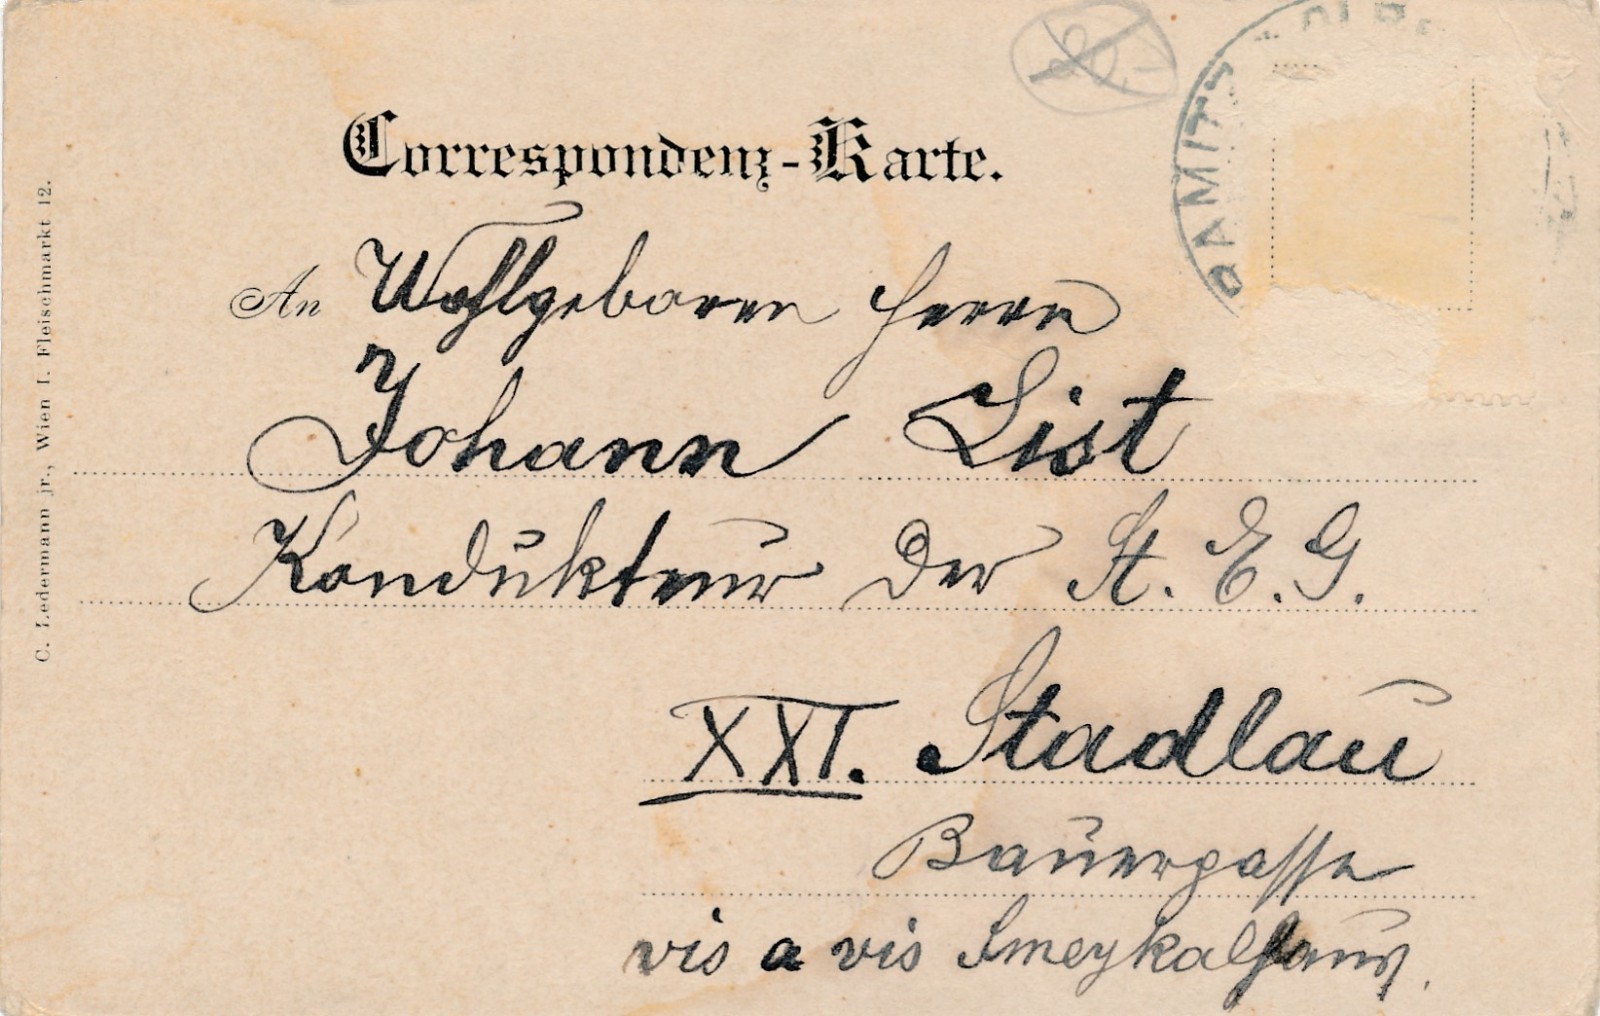 Correspondenz-Karte.
An Wohlgeboren Herrn
Johann List
Kondukteur der St. E. G.
XXI. Stadlau
Bauergasse
vis a vis Smeykalhaus.
C. Ledermann jr., Wien I. Fleischmarkt 12.